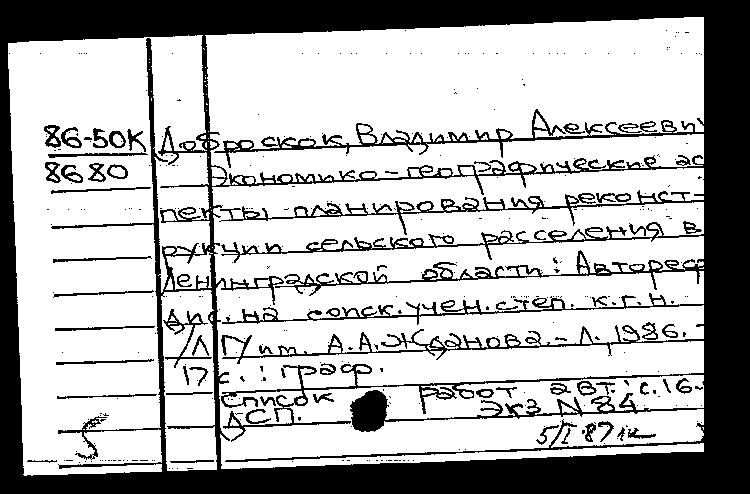 86-50К Доброскок, Владимир Алексееви
8680 Экономико-географические ас
пекты планирования реконст-
рукции сельского расселения в
Ленинградской области: Автореф
дис. на соиск. учен. степ. к.г.н.
/ЛГУ им. А.А.Жданова. - Л., 1986. -
17 с. : граф.
Список работ авт.: с.16.
ДСП. Экз. N 84.
5/I-87